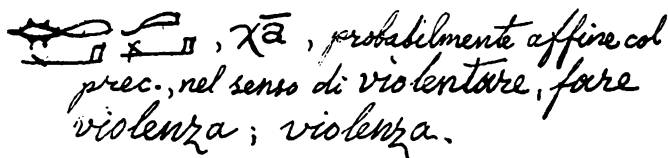 , χā, probabilmente affine col
prec., nel senso di violentare, fare
violenza; violenza.